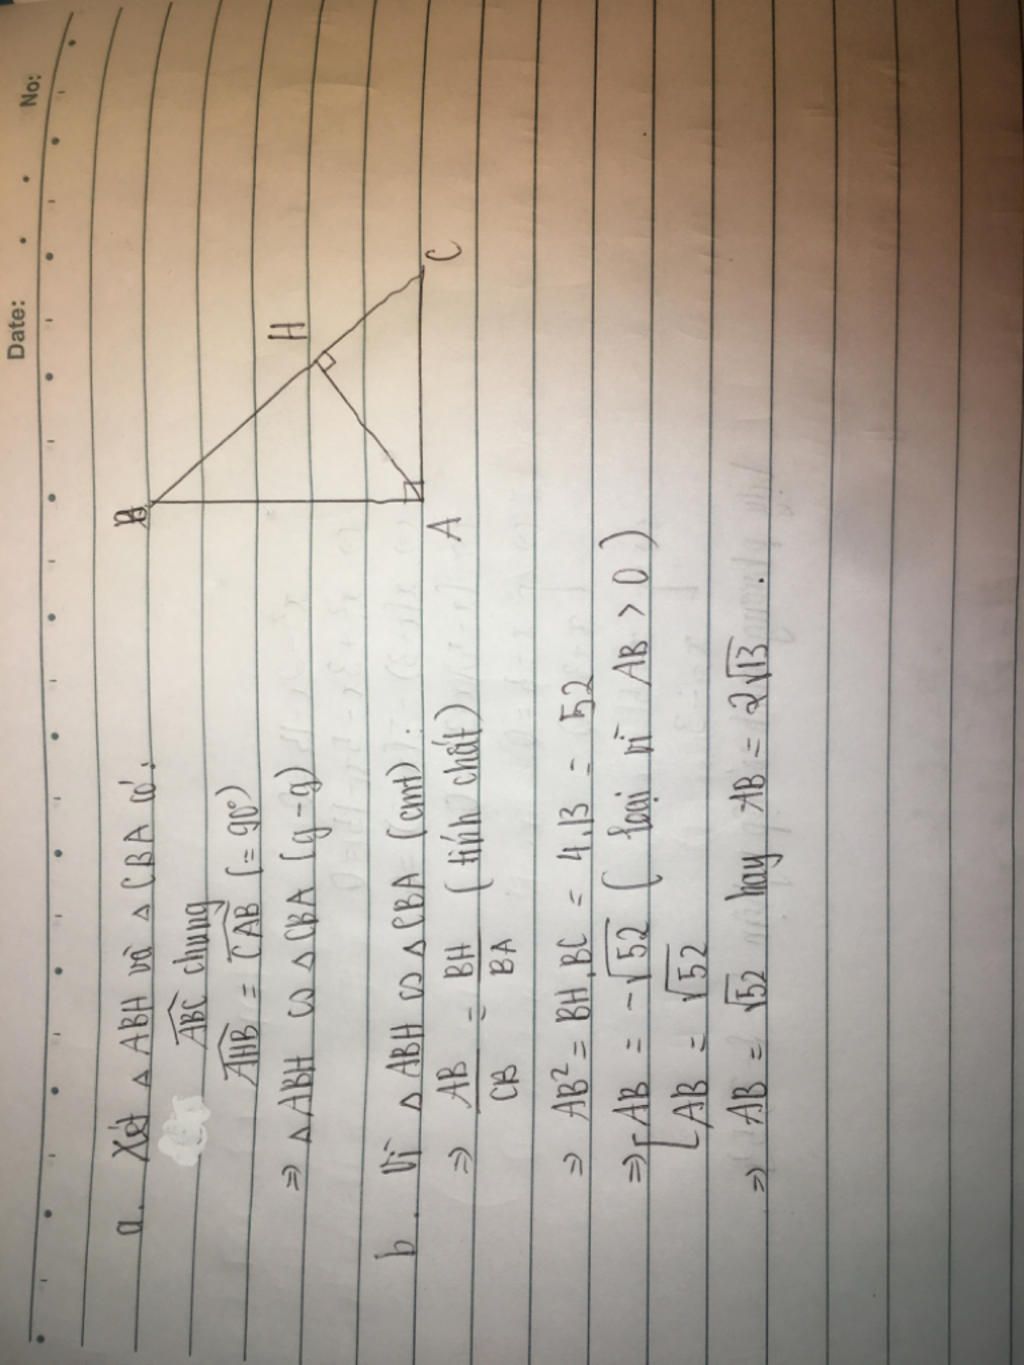 Date: No:
B
H
A
C
a. Xét △ ABH và △ CBA có:
\widehat{ABC} chung
\widehat{AHB} = \widehat{CAB} (= 90°)
⇒ △ ABH ∽ △ CBA (g-g)
b. Vì △ ABH ∽ △ CBA (cmt):
⇒ AB/CB = BH/BA (tính chất)
⇒ AB² = BH.BC = 4.13 = 52
⇒ [ AB = -√52 (loại vì AB > 0)
[ AB = √52
⇒ AB = √52 hay AB = 2√13.